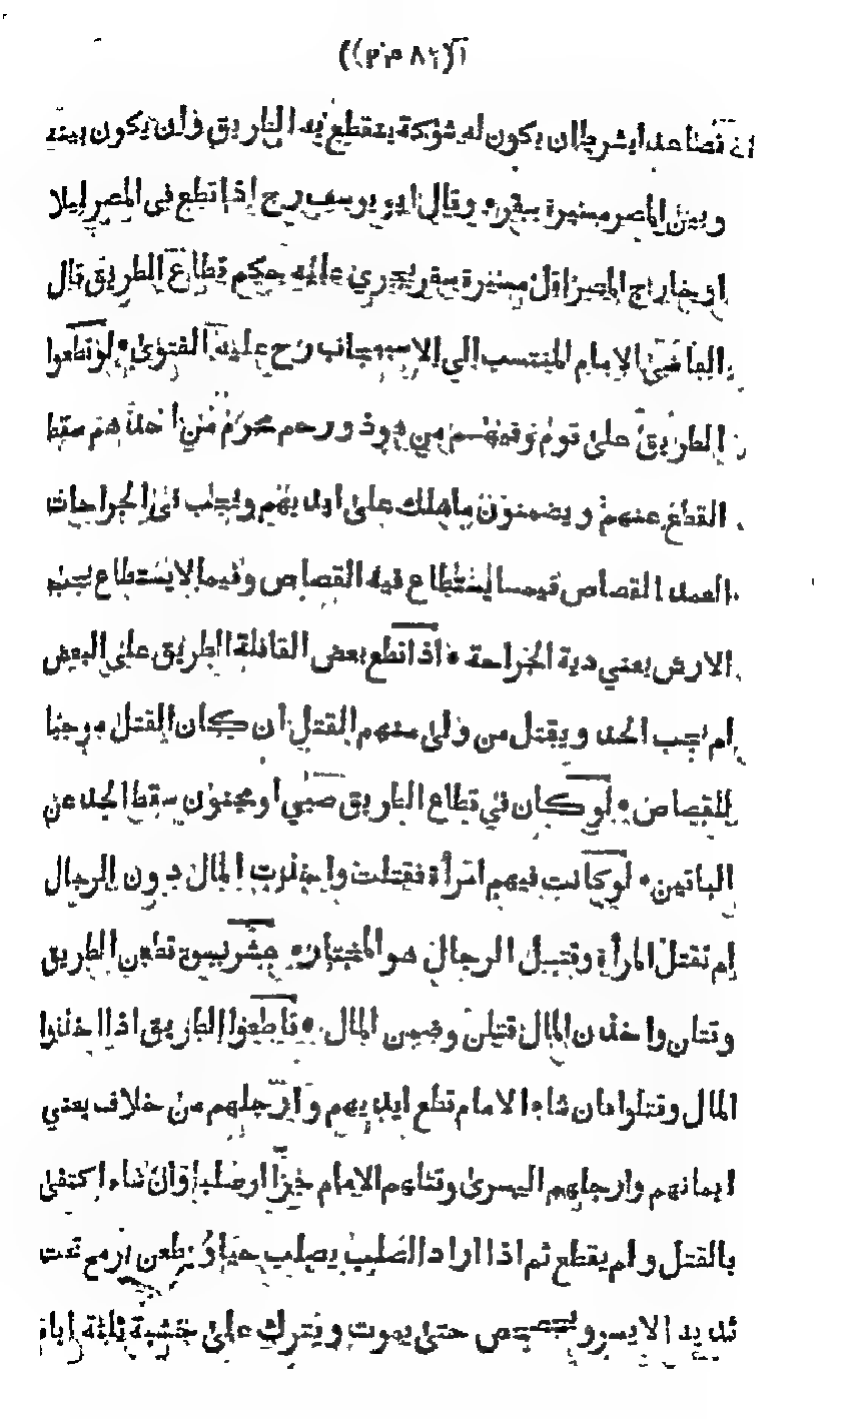 فصاعدا بشرط ان يكون له شوكة بقطع يد الطريق وان يكون بينه
وبين المصر مسيرة سفر • وقال ابو يوسف رح اذا قطع في المصر ليلا
او خارج المصر اقل مسيرة سفر يجري عليه حكم قطاع الطريق قال
القاضي الامام المنتسب الى الاسبيجاب رح عليه الفتوى • لو قطعوا
الطريق على قوم فيهم من هو ذو رحم محرم من احدهم سقط
القطع عنهم ويضمنون ما هلك على ايديهم ويجب في الجراحات
العمد القصاص فيما يستطاع فيه القصاص وفيما لا يستطاع يجب
الارش يعني دية الجراحة • اذا قطع بعض القافلة الطريق على البعض
لم يجب الحد ويقتل من ولى منهم القتل ان كان القتل موجبا
للقصاص • لو كان في قطاع الطريق صبي او مجنون سقط الحد عن
الباقين • لو كانت فيهم امرأة فقتلت واخذت المال دون الرجال
لم تقتل المرأة وقتل الرجال هو المختار • عشر نسوة قطعن الطريق
وقتلن واخذن المال قتلن وضمن المال • قاطعوا الطريق اذا اخذوا
المال وقتلوا فان شاء الامام قطع ايديهم وارجلهم من خلاف يعني
ايمانهم وارجلهم اليسرى وقتلهم الامام او صلبا وان شاء اكتفى
بالقتل ولم يقطع ثم اذا اراد الصلب يصلب حيا و يطعن برمح تحت
ثديه الايسر و حتى يموت ويترك على خشبة ثلثة ايام